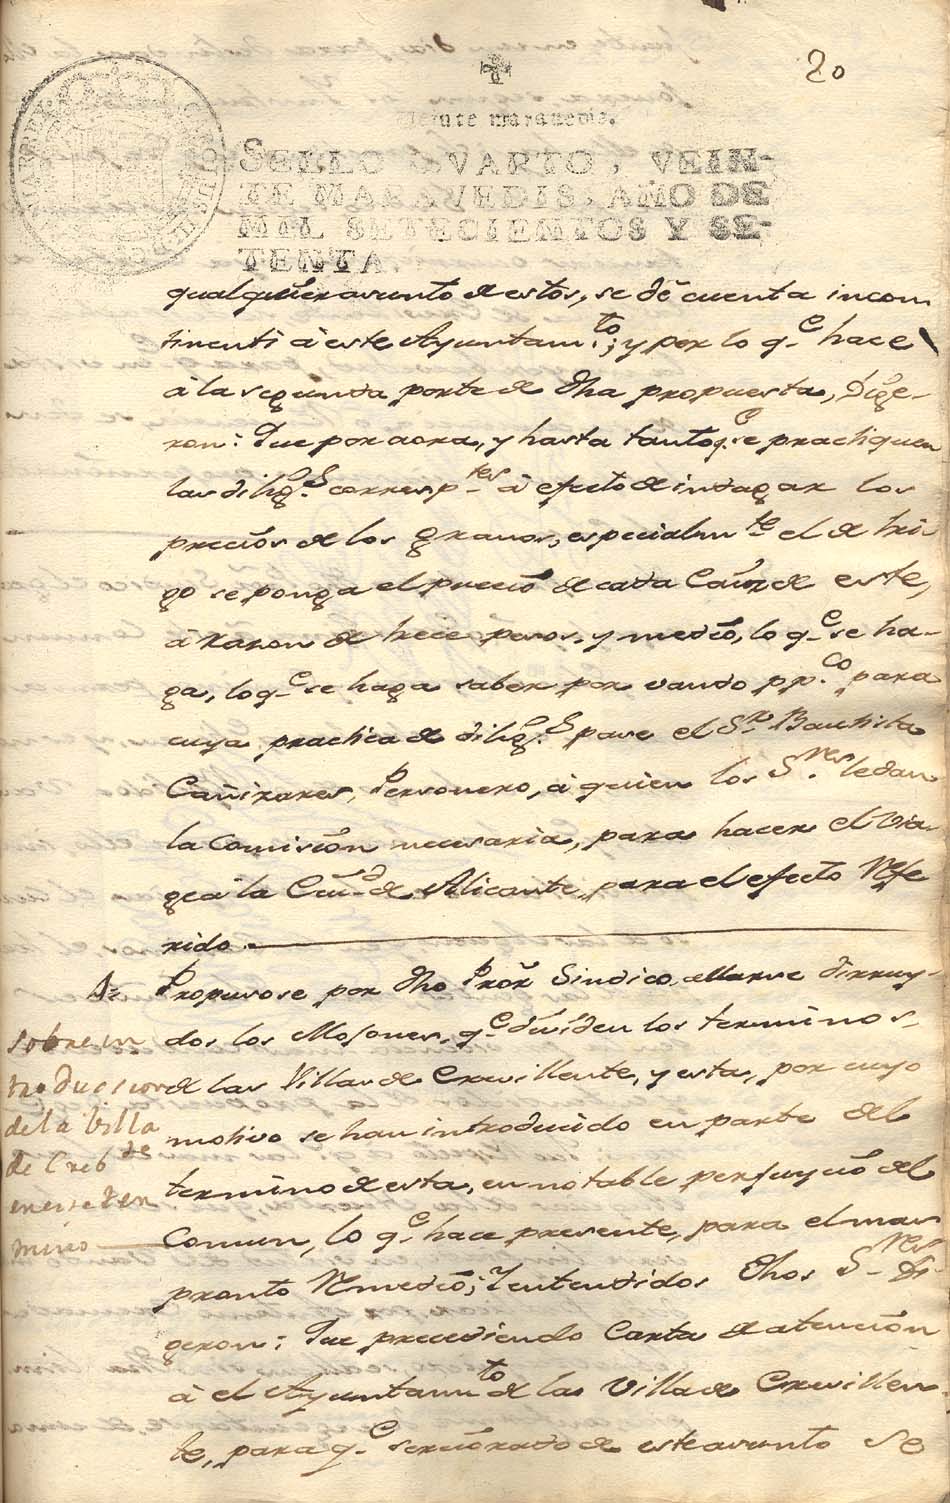 20
Veinte maravedis.
SELLO QVARTO, VEIN-
TE MARAVEDIS, AÑO DE
MIL SETECIENTOS Y SE-
TENTA.
qualquier asunto de estos, se dé cuenta incon
tinenti à este Ayuntam.to; y por lo q.e hace
à la segunda parte de dha propuesta, Dige-
ron: Que por aora, y hasta tanto q.e se practiquen
las dilig.s corresp.tes à efecto de indagar los
precios de los granos, especialm.te el de tri-
go se ponga el precio de cada Caiz de este,
à razon de trece pesos, y medio, lo q.e se ha-
ga, lo q.e se haga saber por vando pp.co para
cuya practica de dilig.s pase el S.r Bautista
Cañizares, Personero, à quien los S.res le dan
la Comision necesaria, para hacer el via-
ge à la Ciu.d de Alicante, para el efecto Refe
rido.
Propusose por dho Pror Sindico allarse dirruy-
dos los Mojones, q.e dividen los terminos
de las Villas de Crevillente, y esta, por cuyo
motivo se han introducido en parte del
termino de esta, en notable perjuycio del
Comun, lo q.e hace presente, para el mas
pronto Remedio; Y entendidos dhos S.res Di-
geron: Que precediendo Carta de atencion
à el Ayuntam.to de la Villa de Crevillen-
te, para q.e sercionado de este asunto se
sobre in
troduccion
de la Villa
de Creb.te
en este ter
mino